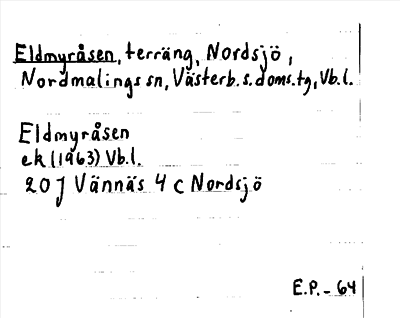 Eldmyråsen, terräng, Nordsjö,
Nordmalings sn, Västerb. s. doms. tg, Vb. l.
Eldmyråsen
ek (1963) Vb. l.
20 J Vännäs 4 c Nordsjö
E.P. - 64